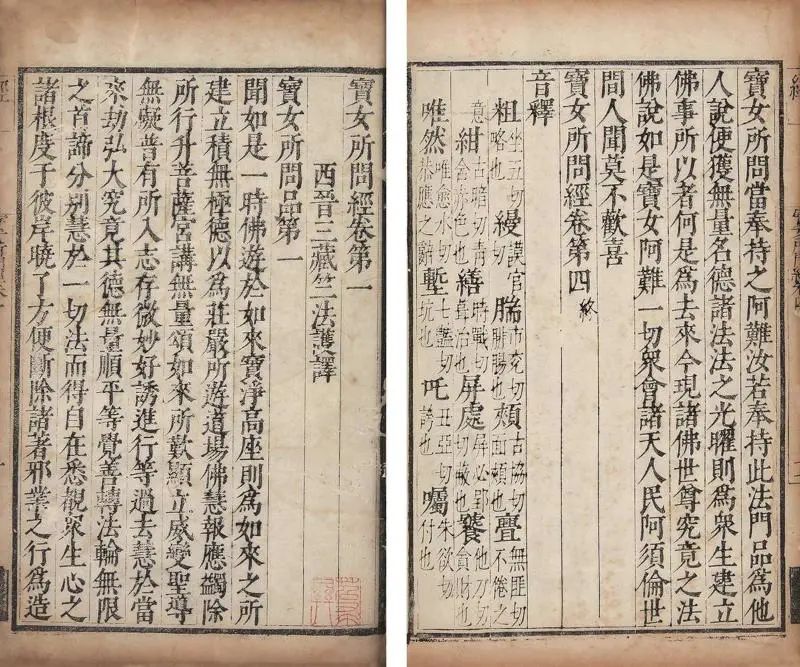 寶女所問經卷第一
西晉三藏竺法護譯
寶女所問品第一
聞如是一時佛遊於如來寶淨高座則爲如來之所
建立積無極德以爲莊嚴所遊道場佛慧報應蠲除
所行升菩薩宮講無量頌如來所歎顯立威變聖導
無礙普有所入志存微妙好誘進行等過去慧於當
來劫弘大究竟其德無量順平等覺善轉法輪無限
之首諦分別慧於一切法而得自在悉觀衆生心之
諸根度于彼岸曉了方便斷除諸著邪業之行爲造
寶女所問當奉持之阿難汝若奉持此法門品爲他
人說便獲無量名德諸法法之光曜則爲衆生建立
佛事所以者何是爲去來今現諸佛世尊究竟之法
佛說如是寶女阿難一切衆會諸天人民阿須倫世
間人聞莫不歡喜
寶女所問經卷第四 終
音釋
粗 坐五切略也 縵 謨官切 腨 市兖切腓腸也 頰 古協切面頰也 亹 無匪切不倦之
意 紺 古暗切青含赤色也 繕 時戰切治也 屏處 屏必郢切蔽也 饕 他刀切貪財也
唯然 唯愈水切恭應之辭 塹 七豔切坑也 吒 丑亞切誇也 囑 朱欲切付也